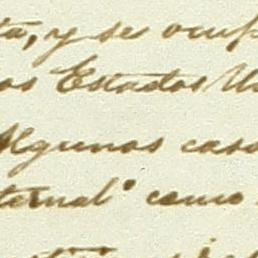 ta, y se ocup
os Estados U
Algunos caso
ternal" como